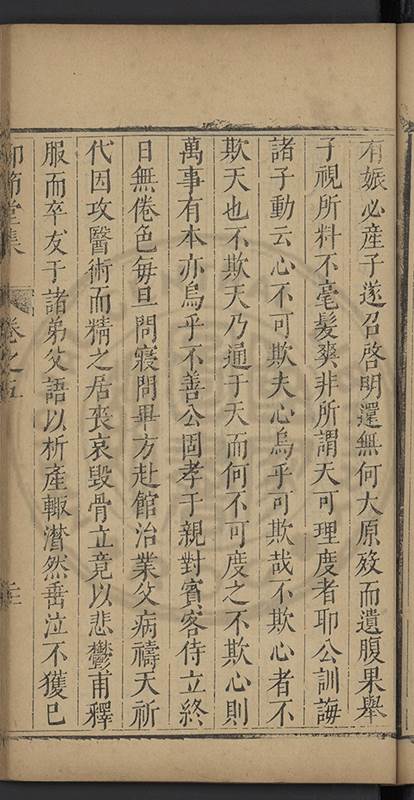 有娠必產子遂召啓明還無何大原歿而遺腹果舉
子視所料不毫髮爽非所謂天可理度者耶公訓誨
諸子動云心不可欺夫心烏乎可欺哉不欺心者不
欺天也不欺天乃通于天而何不可度之不欺心則
萬事有本亦烏乎不善公固孝于親對賓客侍立終
日無倦色每旦問寢問畢方赴館治業父病禱天祈
代因攻醫術而精之居喪哀毀骨立竟以悲鬱甫釋
服而卒友于諸弟父語以析產輙潸然垂泣不獲已
仰節堂集
卷之五